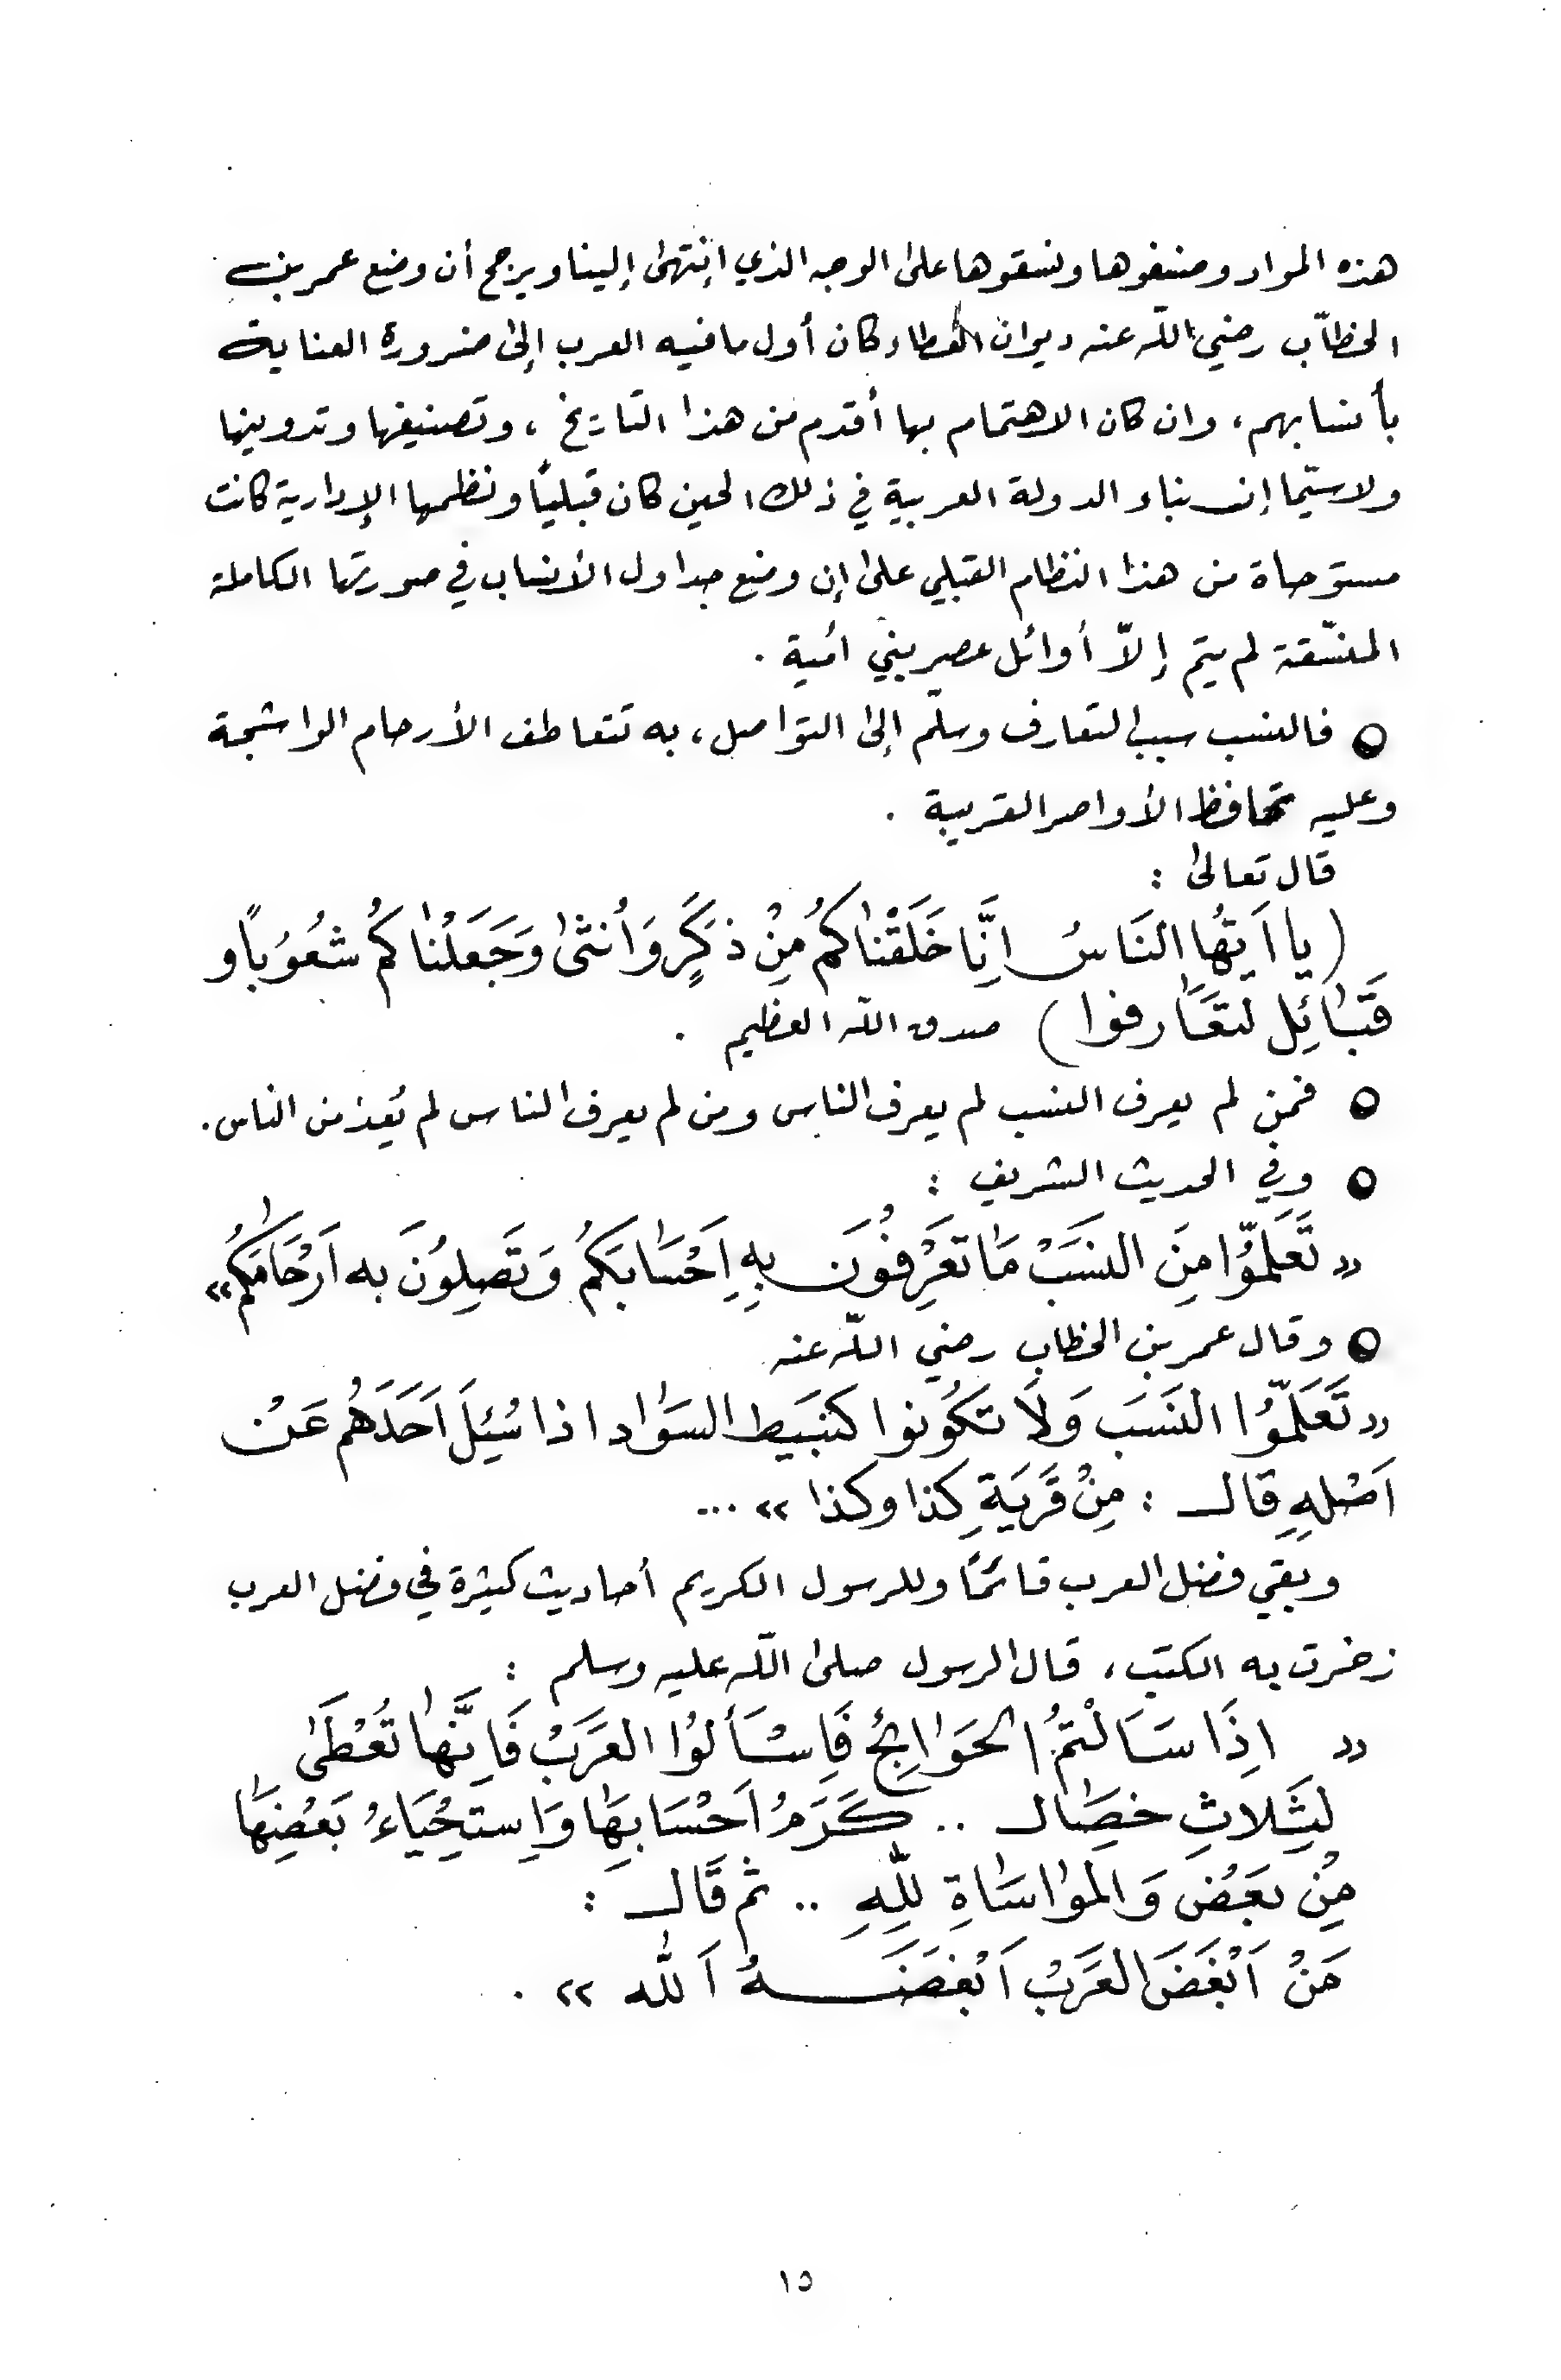 هذه المواد وصنفوها ونسقوها على الوجه الذي إنتهى إلينا ويرجح أن وضع عمر بن
الخطّاب رضي الله عنه ديوان العطاء وكان أول ما فيه العرب إلى ضرورة العناية
بأنسابهم، وان كان الاهتمام بها أقدم من هذا التاريخ، وتصنيفها وتدوينها
ولاسيّما إن بناء الدولة العربية في ذلك الحين كان قبلياً ونظمها الإدارية كانت
مستوحاة من هذا النظام القبلي على إن وضع جداول الأنساب في صورتها الكاملة
المنسّقة لم يتم إلاّ أوائل عصر بني أمية .
● فالنسب سبب التعارف وسلّم إلى التواصل، به تتعاطف الأرحام الواشجة
وعليه تحافظ الأواصر القريبة .
قال تعالى :
(يا اَيُّها النَاسُ اِنَّا خَلَقْناكُمْ مِنْ ذَكَرٍ وَاُنثى وَجَعَلْناكُمْ شعُوُباً و
قَبَائِل لتعَارفوا) صدق الله العظيم .
● فمن لم يعرف النسب لم يعرف الناس ومن لم يعرف الناس لم يُعد من الناس.
● وفي الحديث الشريف :
«تَعَلمّوُا مِنَ النسَبْ مَا تعَرِفُونَ بِهِ اَحْسَابَكُمُ وَتَصِلِوُنَ به اَرْحَامَكُمُ»
● وقال عمر بن الخطاب رضي الله عنه
«تَعَلَمّوُا النَسَبَ وَلاَ تكَوُنوا كنبَيَط السَوَاد اذا سُئِلَ اَحَدَهُم عَنْ
اَصْلِهِ قال : مِنْ قَريَةِ كذا وكذا» ...
وبقي فضل العرب قائماً وللرسول الكريم أحاديث كثيرة في فضل العرب
زخرت به الكتب، قال الرسول صلى الله عليه وسلم :
« اِذَا سَاَلْتمُ الحَوَائِجُ فَاِسْأَلوُا العَرَبْ فَاِنَّها تُعْطَى
لثِلاثِ خصِال .. كَرَمُ اَحْسَابِهَا وَاِستِحْيَاءُ بَعْضِهَا
مِنْ بَعْض وَالموَاسَاةِ للِّهِ .. ثم قَال :
مَنْ اَبْغَضَ العَرَبْ اَبْغضَهُ اَلله» .
١٥